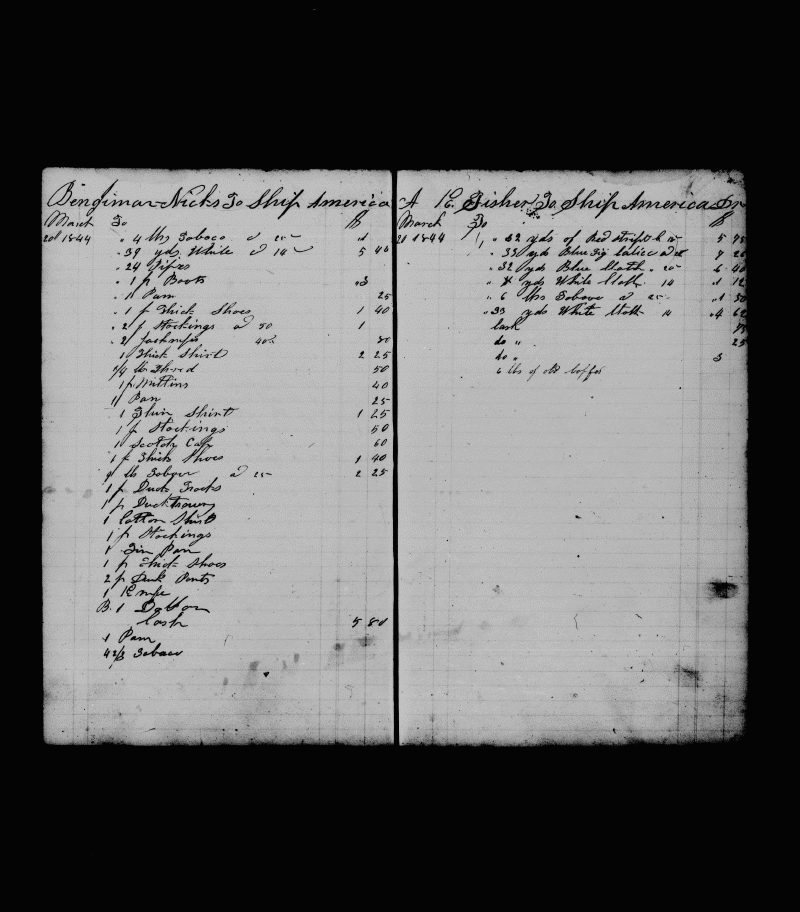 Bengimar Nicks To Ship America
March To $
20d 1844 " 4 lbs Tobaco a 25 1
" 39 yds White a 14 5 46
" 24 pipes
" 1 p Boots 3
" 1 Pan 25
" 1 p Thick Shoes 1 40
" 2 p Stockings a 50 1
" 2 40 80
1 Thick Shirt 2 25
1/4 lb Thred 50
1 p Mittins 40
1 Pan 25
1 Thin Shirt 1 25
1 p Stockings 50
1 Scotch Cap 60
1 p Thick Shoes 1 40
9 lb a 25 2 25
1 p Duck Frocks
1 p Duck
1 Cotton Shirt
1 p Stockings
1 Tin Pan
1 p Thick Shoes
2 p Duck Pants
1 Knife
B. 1
Cash 5 80
1 Pan
4 2/3 Tobaco
A E. Fisher To Ship America Dr
March To $
21 1844 " yds of Red Stript 15 5
" 33 yds Blue Fig Calico a 7 26
" 32 yds Blue Cloth " 20 6 40
" 8 yds White Cloth 14 1 12
" 6 lbs a 25 1 50
" 33 yds White Cloth 14 4 62
Cash
do " 25
do " 3
6 lbs of old